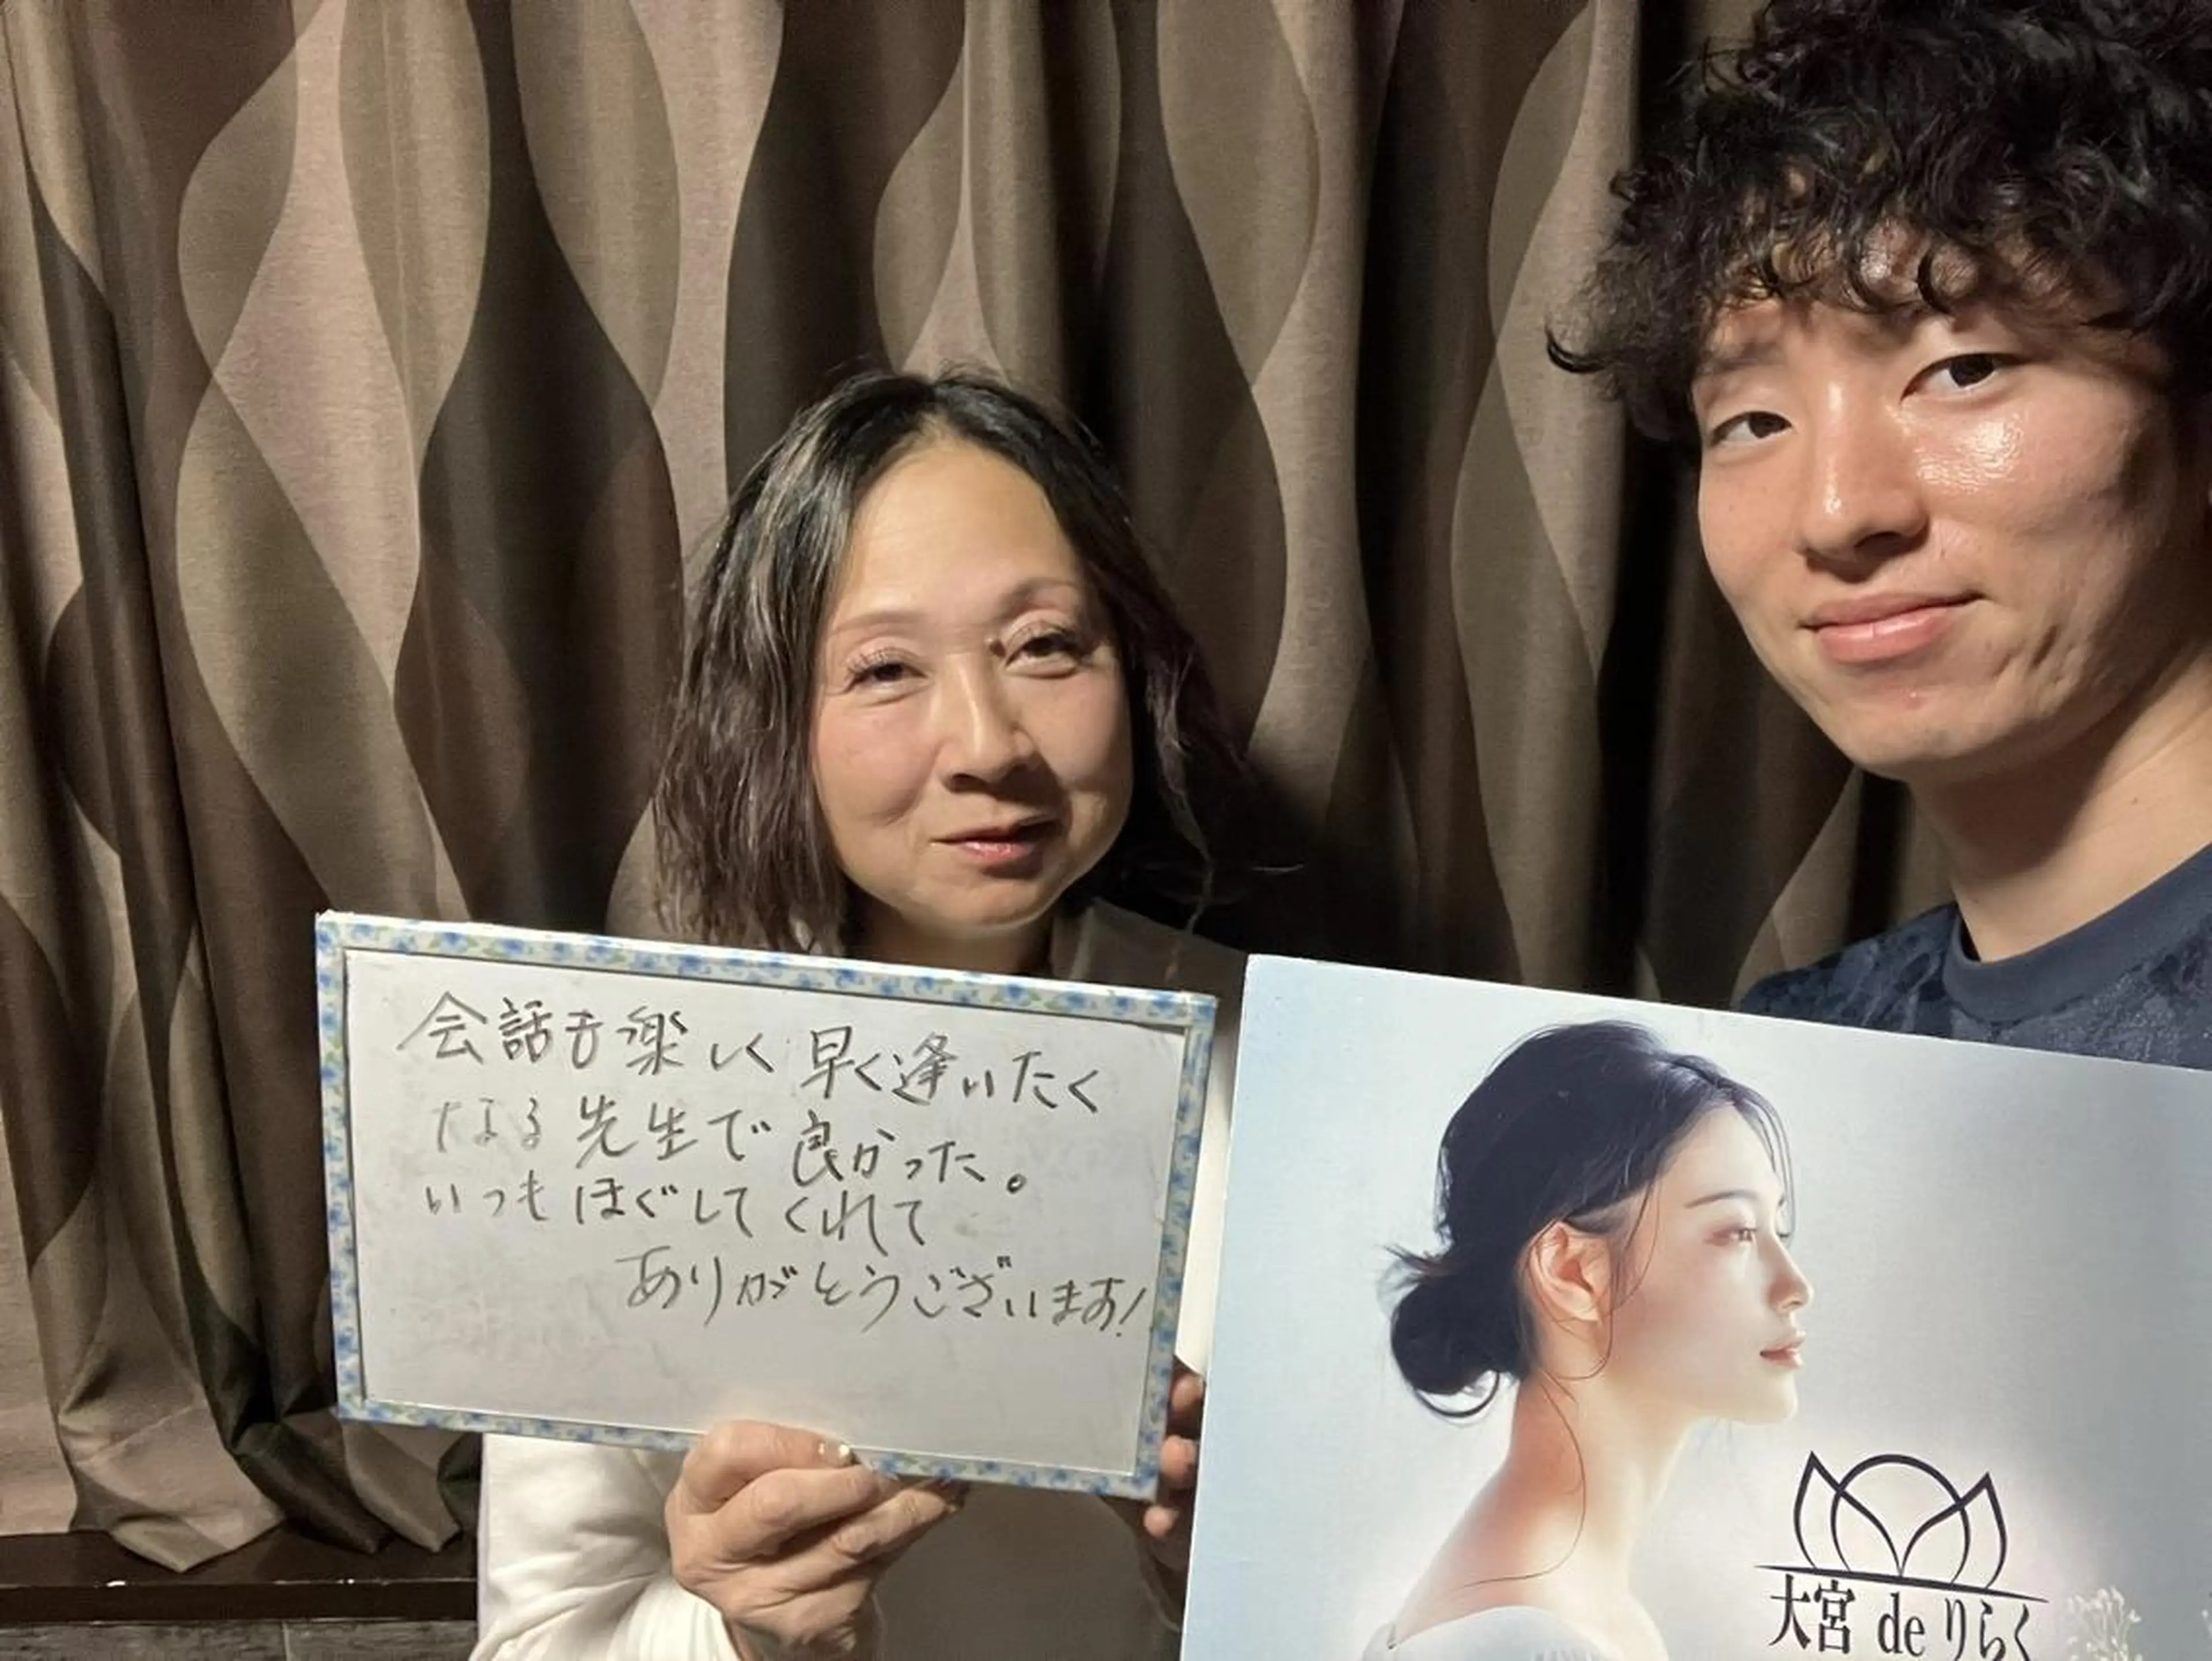 会話も楽しく早く逢いたく
なる先生で良かった。
いつもほぐしてくれて
ありがとうございます!
大宮 de りらく